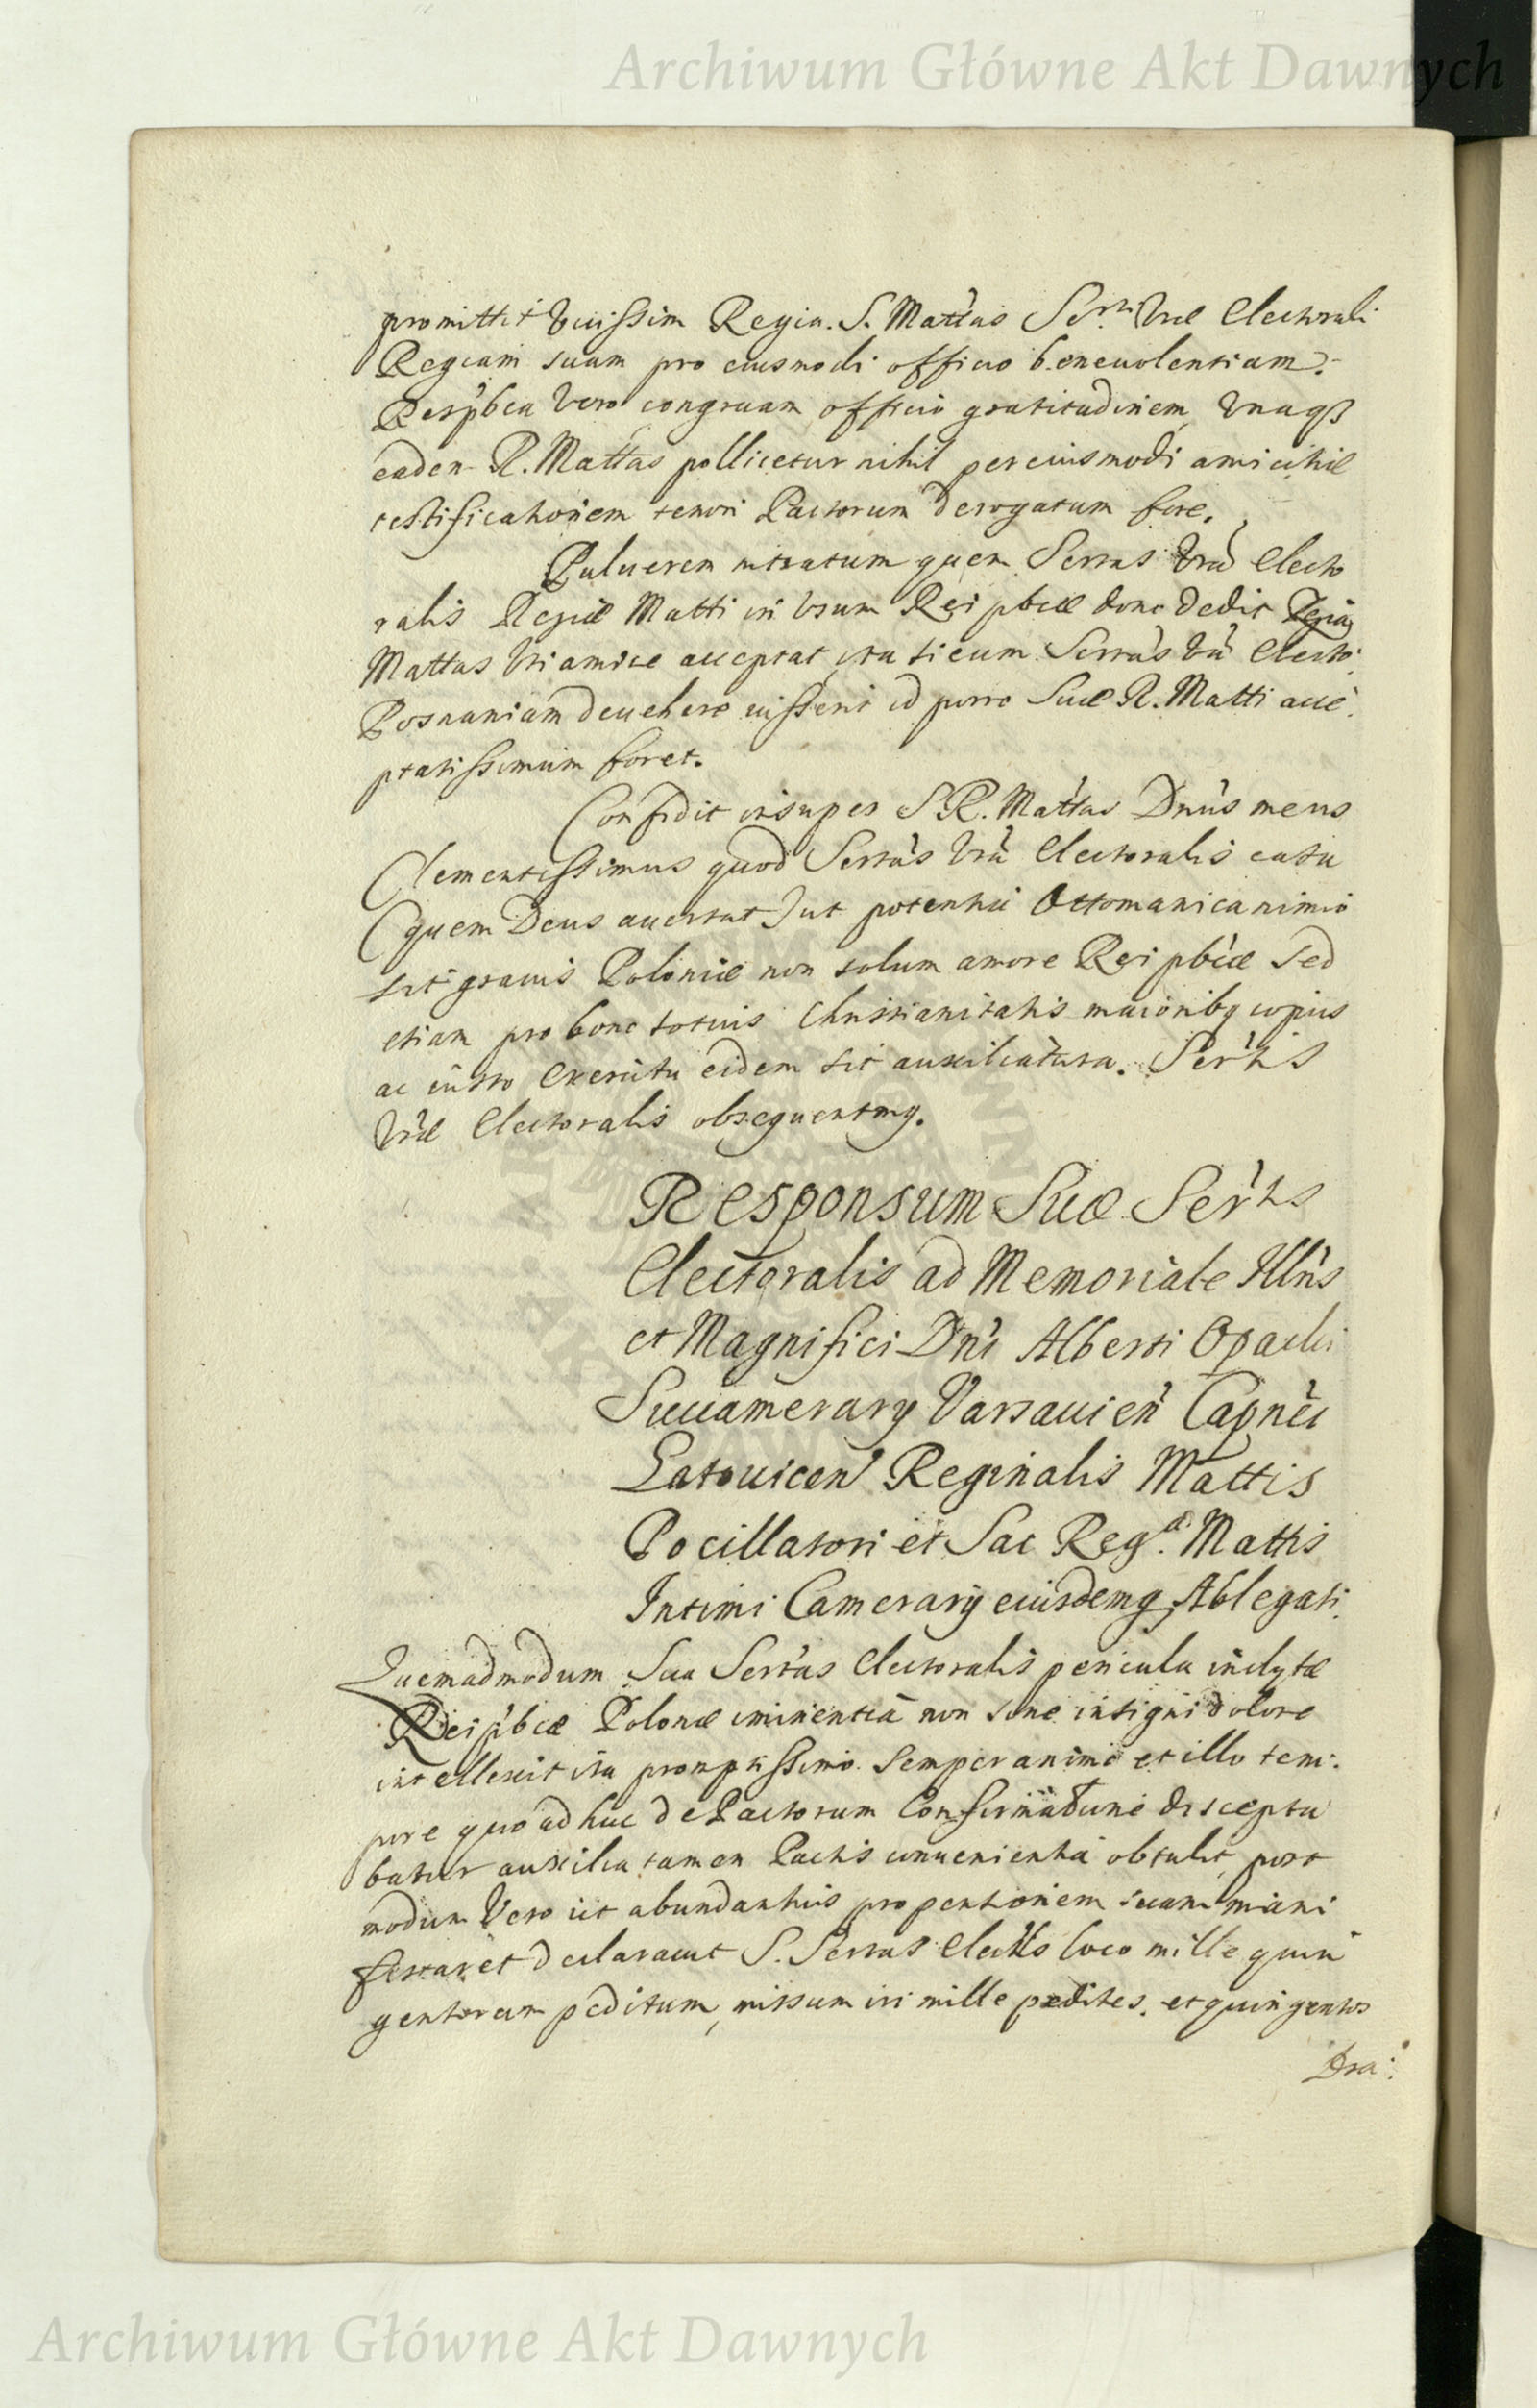 Archiwum Główne Akt Dawnych
promittit vicissim Regia. S. Mattas Serti Vræ Electorali
Regiam suam pro eiusmodi officio beneuolentiam.
Respbca vero congruam officio gratitudinem Vnaqȝ
eadem R. Mattas pollicetur nihil per eiusmodi amicitiæ
testificationem tenori Pactorum derogatum fore.
Puluerem nitratum quem Serras Vra Electo
ralis Regiæ Matti in Vsum Reipbcæ dono dedit Regia
Mattas Vti amice acceptat ita si eum Serras Vra Electo.
Posnaniam deuehere iusserit id porro Suæ R. Matti acce.
ptatissimum foret.
Confidit insuper S R. Mattas Dnus meus
Clementissimus quod Serras Vra Electoralis casu
(quem Deus auertat) ut potentia Ottomanica nimio
sit grauis Poloniæ non solum amore Reipbcæ sed
etiam pro bono totius Christianitatis maioribq copiis
ac iusto exercitu eidem sit auxiliatura. Sertis
Vræ Electoralis obsequentmq.
Responsum Suæ Sertis
Electoralis ad Memoriale Illris
et Magnifici Dni Alberti Opacki
Succamerary Varsauien Capnei
Latouicen Reginalis Mattis
Pocillatori et Sac Regæ. Mattis
Intimi Camerary eiusdemq Ablegati.
Quemadmodum Sua Serras Electoralis pericula inclytæ
Reipbcæ Polonæ iminentia non sine insigni dolore
intellexit ita promptissimo semper animo et illo tem.
pore quo adhuc de Pactorum Confirmatione discepta
batur auxilia tamen Pactis conuenientia obtulit, post
modum Vero ut abundantius propensionem suam mani
festaret declarauit S. Serras Elect̃lis loco mille quin
gentorum peditum, missum iri mille pedites. et quingentos
Dra:
Archiwum Główne Akt Dawnych